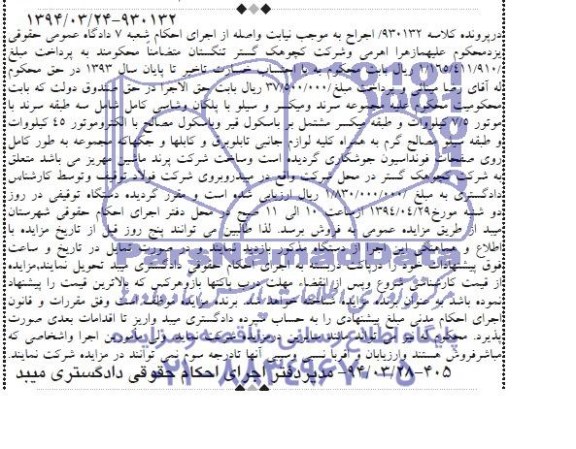 ۹۳۰۱۳۲-۱۳۹۴/۰۳/۲۴
درپرونده کلاسه ۹۳۰۱۳۲/ اجراح به موجب نیابت واصله از اجرای احکام شعبه ۷ دادگاه عمومی حقوقی
یزدمحکوم علیهمازهرا اهرمی وشرکت کچوهک گستر تنگستان متضامناً محکومند به پرداخت مبلغ
۱/۱۶۵/۴۱۱/۹۱۰/ ریال بابت محکوم به با احتساب خسارت تاخیر تا پایان سال ۱۳۹۳ در حق محکوم
له آقای رضا و پرداخت مبلغ ۳۷/۵۰۰/۰۰۰/ ریال بابت حق الاجرا در حق صندوق دولت که بابت
محکومیت محکوم علیه مجموعه سرند ومیکسر و سیلو با پلکان وشاسی کامل شامل سه طبقه سرند با
موتور ۷/۵ کیلووات و طبقه میکسر مشتمل بر باسکول قیر وباسکول مصالح با الکتروموتور ۴۵ کیلووات
و طبقه سیلو مصالح گرم به همراه کلیه لوازم جانبی تابلوبرق و کابلها و جکهاکه مجموعه به طور کامل
روی صفحات فونداسیون جوشکاری گردیده است وساخت شرکت پرند ماشین مهریز می باشد متعلق
به شرکت کچوهک گستر در محل شرکت واقع در میبدروبروی شرکت فولاد توقیف وتوسط کارشناس
دادگستری به مبلغ ۱/۸۳۰/۰۰۰/۰۰۰/ ریال ارزیابی شده است و مقرر گردیده دستگاه توقیفی در روز
دو شنبه مورخ۱۳۹۴/۰۴/۲۹ ازساعت ۱۰ الی ۱۱ صبح در محل دفتر اجرای احکام حقوقی شهرستان
میبد از طریق مزایده عمومی به فروش برسد. لذا طالبین می توانند پنج روز قبل از تاریخ مزایده با
اطلاع و هماهنگی این اجرا از دستگاه مذکور بازدید نمایند و در صورت تمایل در تاریخ و ساعت
فوق پیشنهادات خود را دربسته به اجرای احکام حقوقی دادگستری میبد تحویل نمایند،مزایده
از قیمت کارشناسی شروع وپس از انقضاء مهلت مقرر پاکتها بازوهرکس که بالاترین قیمت را پیشنهاد
نموده باشد به عنوان برنده مزایده شناخته خواهد شد. برنده مزایده موظف است وفق مقررات و قانون
اجرای احکام مدنی مبلغ پیشنهادی را به حساب سپرده دادگستری میبد واریز تا اقدامات بعدی صورت
پذیرد. محکوم له نیز می تواند مانند سایرین درمزایده شرکت نماید ولی مامورین اجرا واشخاصی که
مباشرفروش هستند وارزیابان و اقرباء نسبی وسببی آنها تادرجه سوم نمی توانند در مزایده شرکت نمایند.
۴۰۵-۹۴/۰۳/۲۸- مدیردفتر اجرای احکام حقوقی دادگستری میبد
ParsNamadData
پایگاه اطلاع رسانی مناقصه و مزایده
۰۲۱-۸۸۳۴۹۶۷۰-۵